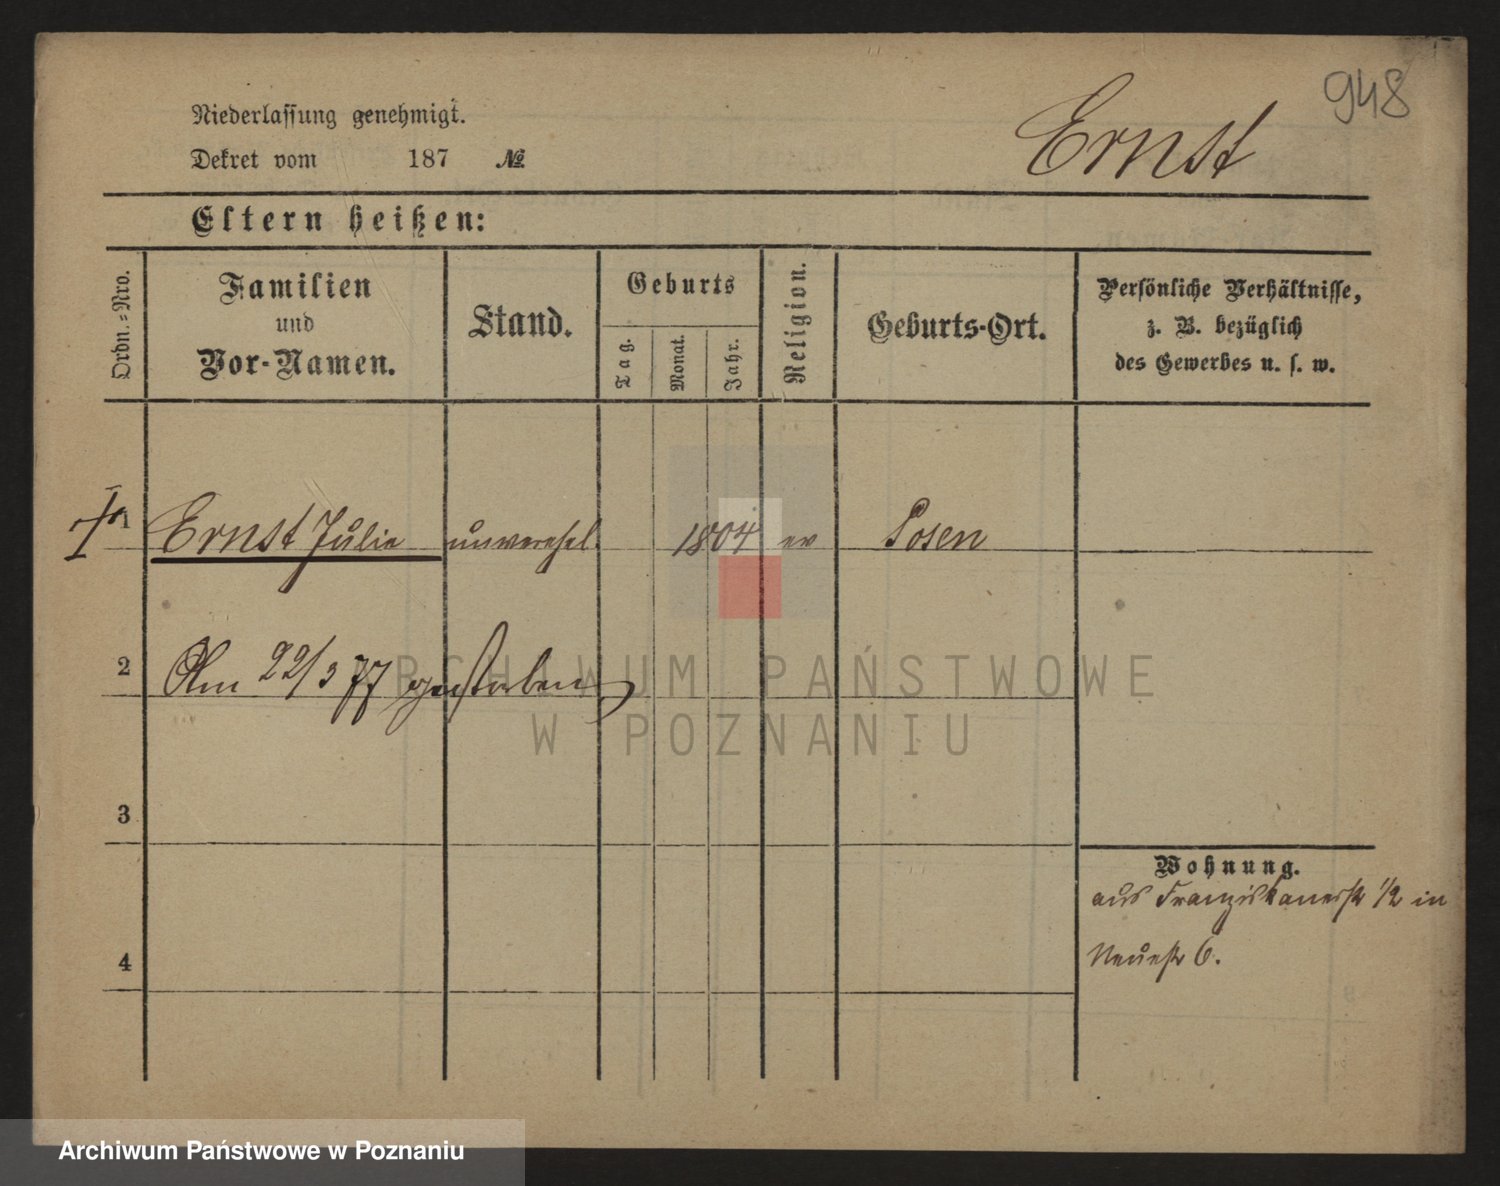 948
Ernst
Niederlassung genehmigt.
Dekret vom 187 №
Eltern heißen:
Ordn.-Nro.
Familien
und
Vor-Namen.
Stand.
Geburts
Tag.
Monat.
Jahr.
Religion.
Geburts-Ort.
Persönliche Verhältnisse,
z. B. bezüglich
des Gewerbes u. s. w.
1 Ernst Julie unverehel. 1804 ev Posen
2 Am 22/3 77 gestorben
3
4
Wohnung.
aus Franziskanerstr 1/2 in
Neuestr 6.
ARCHIWUM PAŃSTWOWE
W POZNANIU
Archiwum Państwowe w Poznaniu